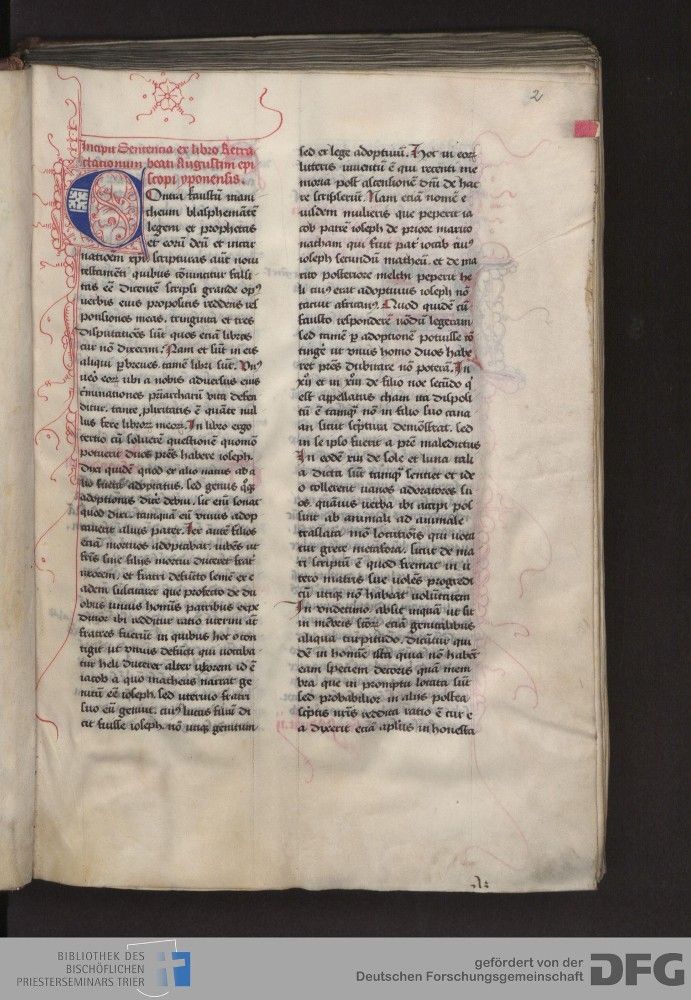 2
Incipit Sentencia ex libro Retra
ctationum beati Augustini epi
scopi yponensis.
Contra faustū mani
cheum blasphemātē
legem et prophetas
et eorū deū et incar
nationem xpi, scripturas aūt noui
testamēti quibus cōuincitur falsi
tas eē dicentē scripsi grande opꝰ
verbis eius propositis reddens res
ponsiones meas. triginta et tres
disputatiōes sūt quos etiā libros
cur nō dixerim? Nam et si sūt in eis
aliqui ꝑbreues. tamē libri sūt. Vnꝰ
ubi a nobis aduersus eius
c̄minationes vita defen
ditur. tante plixitatis ē quāte nul
lus fere libroꝝ meoꝝ. In libro ergo
tertio cū soluerē questionē quomō
potuerit duos prēs habere ioseph.
Dixi quidē quod ex alio natus ab a
lio adoptatus. sed genus qͦqꝫ
adoptionis dicē debui. sic enī sonat
quod dixi. tamquā eū viuus adop
tauerit alius pater. Lex autē filios
etiā mortuos adoptabat. iubēs ut
fr̄is sine filijs mortui duceret frat̄
uxorem. et fratri defūcto semē ex e
adem suscitaret que profecto de du
obus unius homīs patribus expe
ditior ibi redditur ratio uterini aūt
fratres fuerūt in quibus hoc cōtin
tigit ut vnius defūcti qui uocaba
tur heli duceret alter uxorem id ē
iacob a quo matheus narrat ge
nitū eē ioseph. sed uterino fratri
suo eū genuit. cuiꝰ lucas filiū di
cit fuisse ioseph. nō utiqꝫ genitum
sed ex lege adoptiuū. Hoc in eoꝝ
litteris inuentū ē qui recenti me
moria post ascensionē dnī de hac
re scripserūt. Nam etiā nomē e
iusdem mulieris que peperit ia
cob patrē ioseph de priore marito
matham qui fuit pat̄ iacob auꝰ
ioseph secundū matheū. et de ma
rito posteriore melchi peperit he
li cuiꝰ erat adoptiuus ioseph nō
tacuit africanꝰ. Quod quidē cū
fausto responderē nōdū legeram
sed tamē ꝑ adoptionē potuisse cō
tingē ut vnus homo duos habe
ret prēs dubitare nō poterā. In
xij et in xiij de filio noe secūdo qͥ
est appellatus cham ita disposi
tū ē tamqͣ nō in filio suo cana
an sicut scriptura demōstrat. sed
in se ipso fuerit a prē maledictus
In eodē xiij de sole et luna tali
a dicta sūt tamqͣ sentiēt et ide
o tollerent vanos adoratores su
os. quāuis uerba ibi accipi pos
sint ab animali ad animale
traslata mō locutiōis qui uoca
tur grece metafora. sicut de ma
ri scriptū ē quod fremat in u
tero matris sue volēs progredi
cū utiqꝫ nō habeat volūtatem
In vndetimo. absit inquā ut sit
in mēbris sc̄oꝝ etiā genitalibus
aliqua turpitudo. dicūtur qui
dē in honūs ista quia nō habēt
eam speciem decoris quā mem
bra que in promptu locata sūt
sed probabilior in alijs postea
sc̄ptis nr̄is reddita ratio ē cur e
a dixerit etiā aplūs in honesta
BIBLIOTHEK DES
BISCHÖFLICHEN
PRIESTERSEMINARS TRIER
gefördert von der
Deutschen Forschungsgemeinschaft
DFG